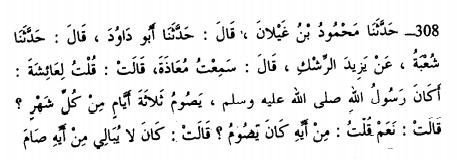 308ـ حَدَّثَنَا مَحْمُودُ بْنُ غَيْلَانَ ، قَالَ : حَدَّثَنَا أَبُو دَاوُدَ ، قَالَ : حَدَّثَنَا
شُعْبَةُ ، عَنْ يَزِيدَ الرِّشْكِ ، قَالَ : سَمِعْتُ مُعَاذَةَ، قَالَتْ : قُلْتُ لِعَائِشَةَ :
أَكَانَ رَسُولُ اللهِ صلى الله عليه وسلم ، يَصُومُ ثَلَاثَةَ أَيَّامٍ مِنْ كُلِّ شَهْرٍ ؟
قَالَتْ : نَعَمْ قُلْتُ : مِنْ أَيِّهِ كَانَ يَصُومُ ؟ قَالَتْ : كَانَ لَا يُبَالِي مِنْ أَيِّهِ صَامَ